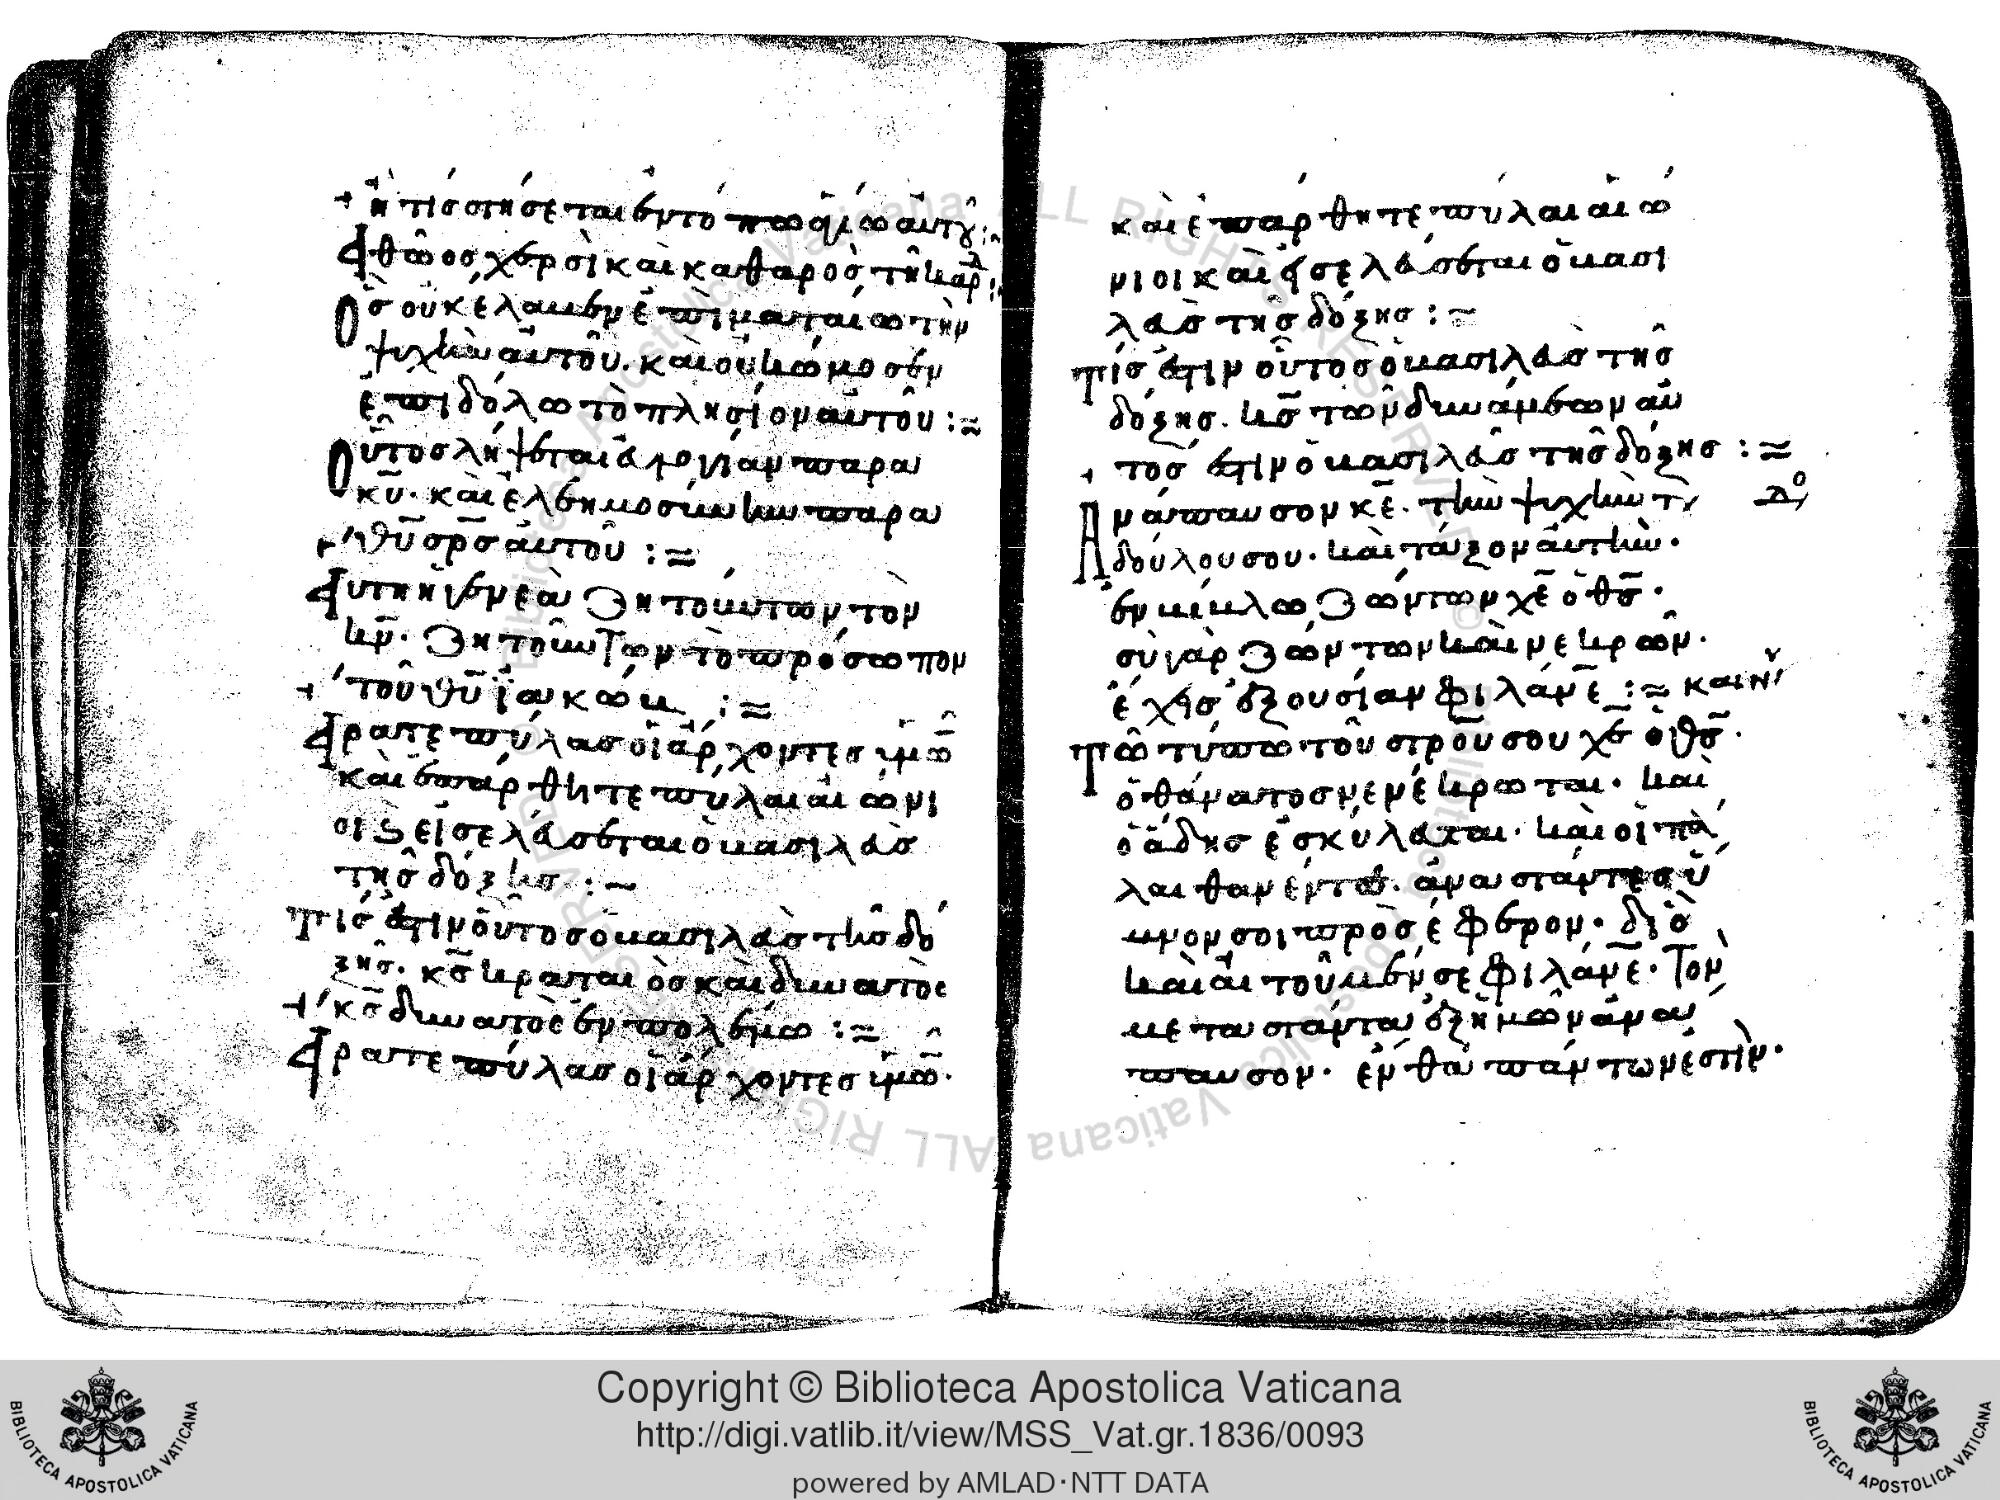 ἢ τίς στήσεται ἐν τόπω ἁγίω αὐτοῦ:
Ἀθῶος χερσὶ καὶ καθαρὸς τῆ καρδ:
Ὃς οὐκ ἔλαβεν ἐπὶ ματαίω τὴν
ψυχὴν αὐτοῦ. καὶ οὐκ ὤμοσεν
ἐπὶ δόλω τὸ πλησίον αὐτοῦ:
Οὗτος λήψεται εὐλογίαν παρα
κυ. καὶ ἐλεημοσύνην παρα
θυ σρσ αὐτοῦ:
Αὕτη ἡ γενεὰ ζητούντων τον
κν. ζητούντων τὸ πρόσωπον
τοῦ θυ ἰακώβ:
Ἄρατε πύλας οἱ ἄρχοντες ὑμῶ
καὶ ἐπάρθητε πύλαι αἰώνι
οι κ εἰσελεύσεται ὁ βασιλεὺς
τῆς δόξης:
Τίς ἐστιν οὗτος ὁ βασιλεὺς τῆς δό
ξης. κς κραταιὸς καὶ δυνατὸς
κς δυνατὸς ἐν πολέμω:
Ἄρατε πύλας οἱ ἄρχοντες ὑμῶ.
καὶ ἐπάρθητε πύλαι αἰώ
νιοι καὶ εἰσελεύσεται ὁ βασι
λεὺς τῆς δόξης:
Τίς ἐστιν οὗτος ὁ βασιλεὺς τῆς
δόξης. κς τῶν δυνάμεων αὐ
τός ἐστιν ὁ βασιλεὺς τῆς δόξης:
Ἀνάπαυσον κε. τὴν ψυχὴν τ
δούλου σου. καὶ τάξον αὐτὴν.
ἐν βίβλω ζώντων χε ὁ θς.
σὺ γὰρ ζώντων καὶ νεκρῶν.
ἔχεις ἐξουσίαν φιλάνε: και ν
Τῶ τύπω τοῦ στρου σου χε ὁ θς.
ὁ θάνατος νενέκρωται. καὶ
ὁ ἅδης ἐσκύλευται. καὶ οἱ πά
λαι θανέντες. ἀναστάντες ὕ
μνον σοι προσέφερον. διὸ
καὶ αἰτοῦμέν σε φιλάνε. τον
μεταστάντα ἐξ ἡμῶν ἀνά
παυσον. ἔνθα πάντων ἐστὶν.
Copyright © Biblioteca Apostolica Vaticana
http://digi.vatlib.it/view/MSS_Vat.gr.1836/0093
powered by AMLAD·NTT DATA
BIBLIOTECA APOSTOLICA VATICANA
BIBLIOTECA APOSTOLICA VATICANA